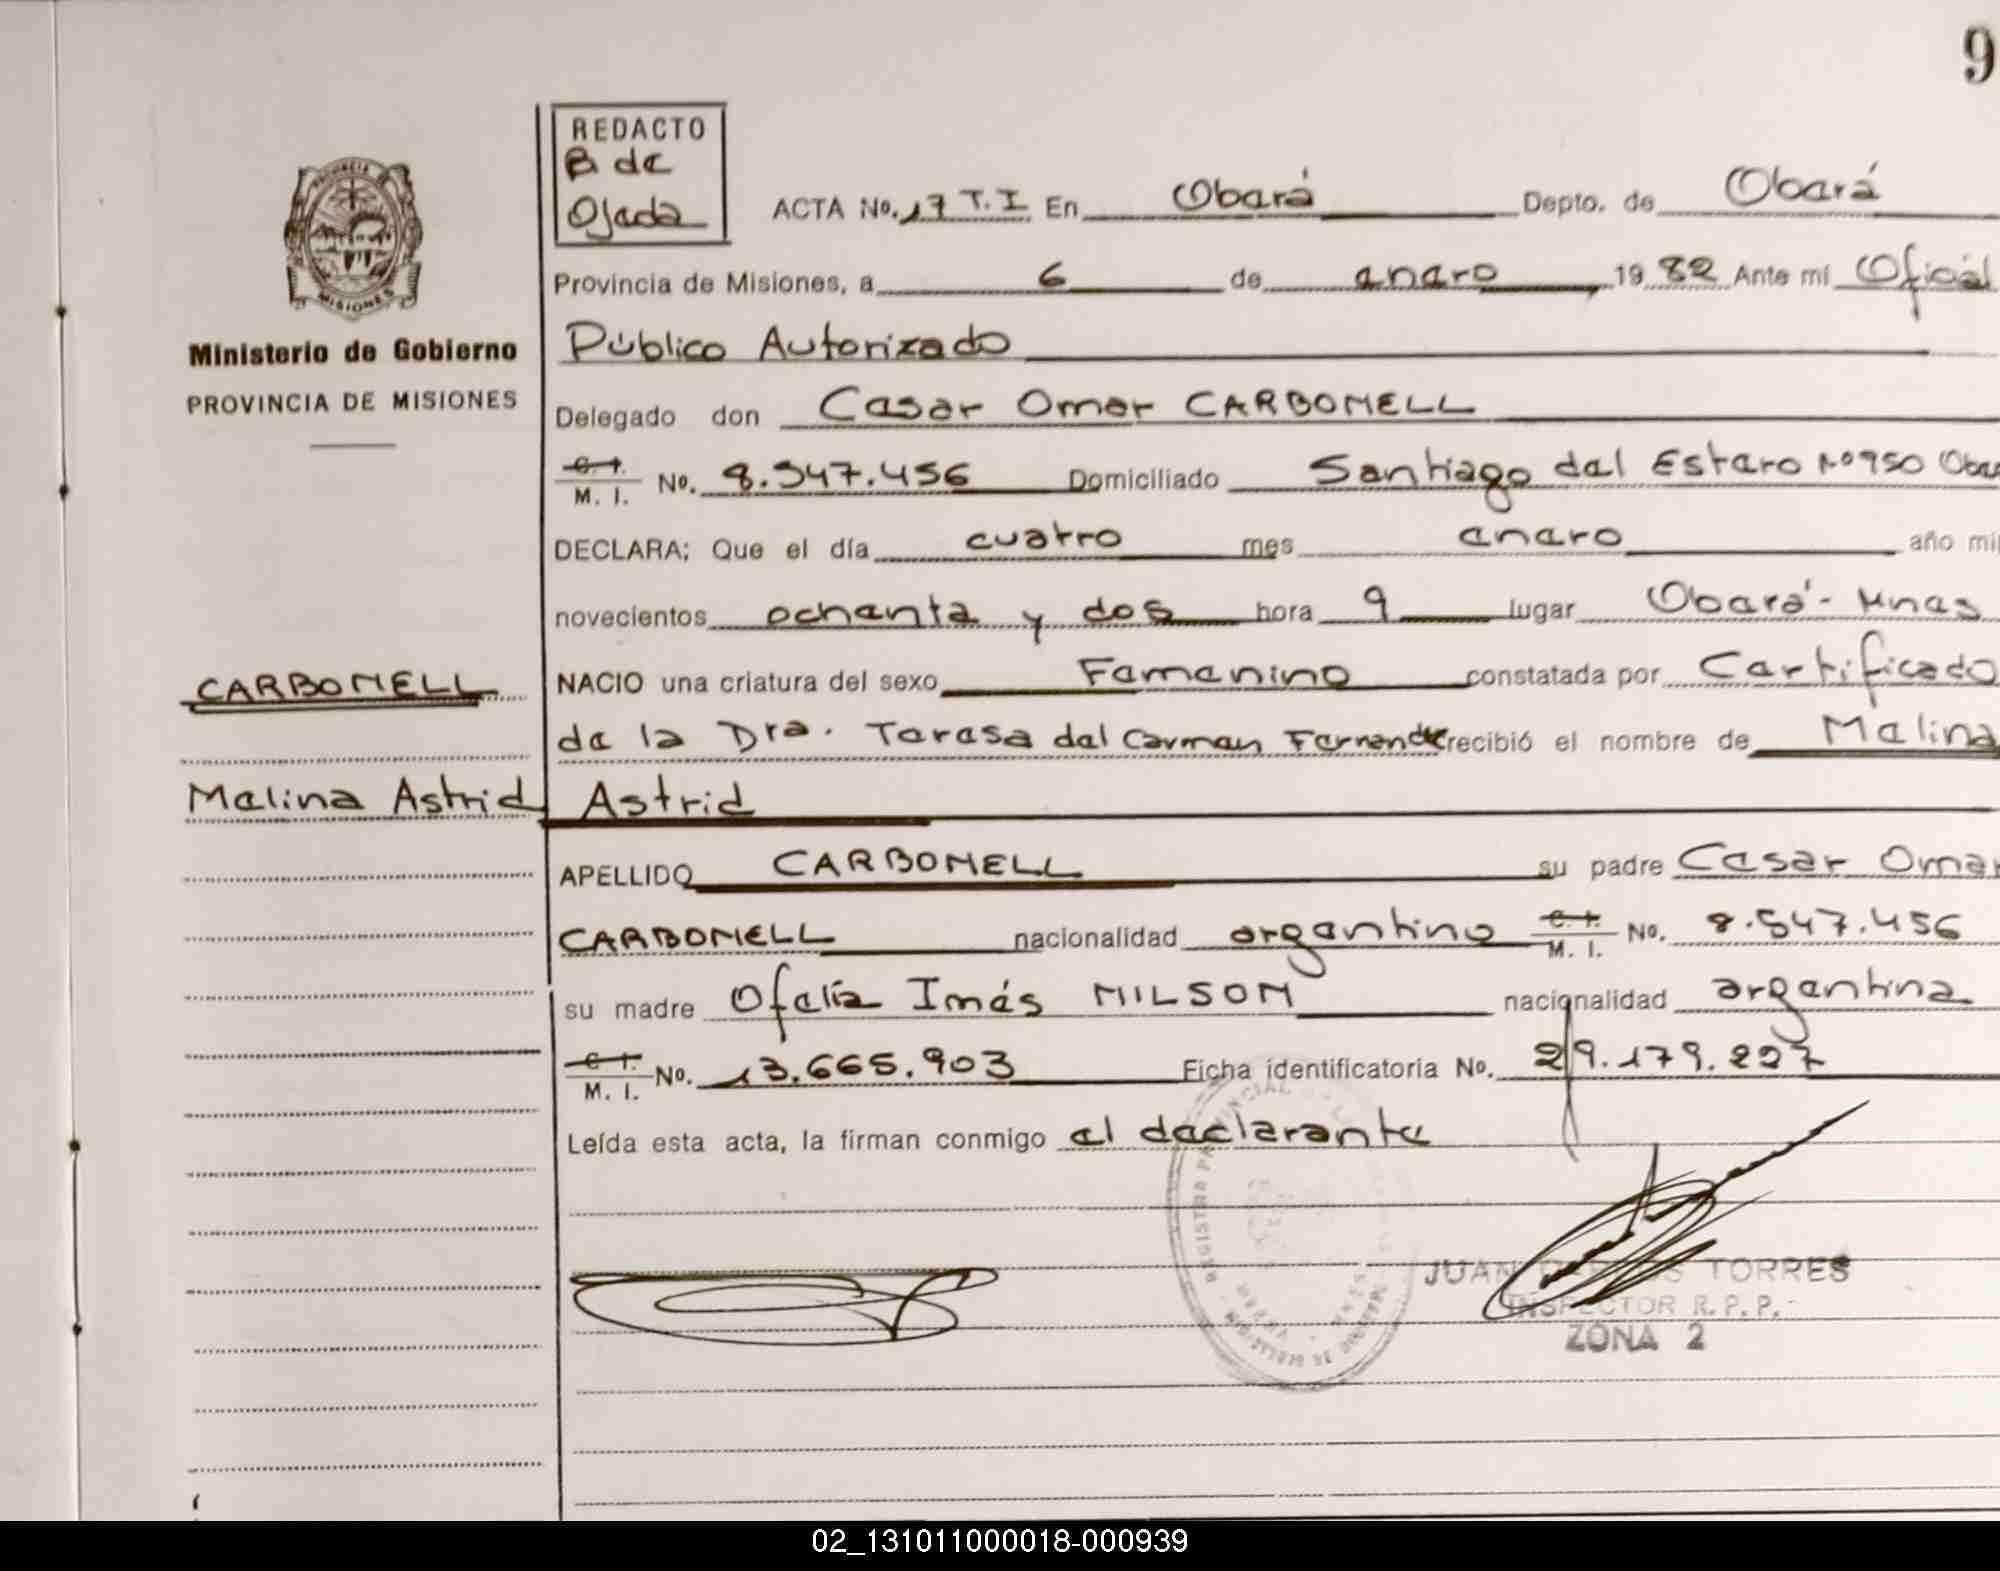 9
REDACTO
B de
Ojeda
ACTA No. 17 T.I En Oberá Depto. de Oberá
Provincia de Misiones, a 6 de enero 1982 Ante mí Oficial
Público Autorizado
Ministerio de Gobierno
PROVINCIA DE MISIONES
Delegado don Cesar Omar CARBONELL
C. I.
M. I. No. 8.547.456 Domiciliado Santiago del Estero Nº 950 Obe
DECLARA; Que el día cuatro mes enero año mi
novecientos ochenta y dos hora 9 lugar Oberá - Mnes
CARBONELL
NACIO una criatura del sexo Femenino constatada por Certificado
de la Dra. Teresa del Carmen Fernandez recibió el nombre de Melina
Melina Astrid Astrid
APELLIDO CARBONELL su padre Cesar Omar
CARBONELL nacionalidad argentino C. I.
M. I. No. 8.547.456
su madre Ofelia Inés NILSON nacionalidad argentina
C. I.
M. I. No. 13.665.903 Ficha identificatoria No. 29.179.227
Leída esta acta, la firman conmigo el declarante
JUAN CARLOS TORRES
INSPECTOR R. P. P.
ZONA 2
02_131011000018-000939